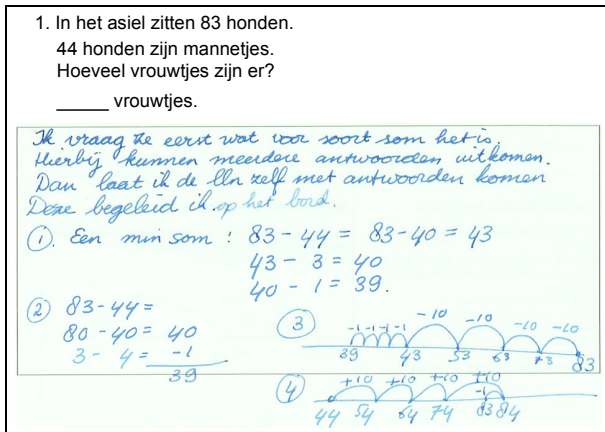 1. In het asiel zitten 83 honden.
44 honden zijn mannetjes.
Hoeveel vrouwtjes zijn er?
_____ vrouwtjes.
Ik vraag ze eerst wat voor soort som het is.
Hierbij kunnen meerdere antwoorden uitkomen.
Dan laat ik de lln zelf met antwoorden komen
Deze begeleid ik op het bord.
① Een min som : 83 - 44 = 83 - 40 = 43
43 - 3 = 40
40 - 1 = 39.
② 83 - 44 =
80 - 40 = 40
3 - 4 = -1
39
③ -1 -1 -1 -1 -10 -10 -10 -10
39 43 53 63 73 83
④ +10 +10 +10 +10
-1
44 54 64 74 83 84